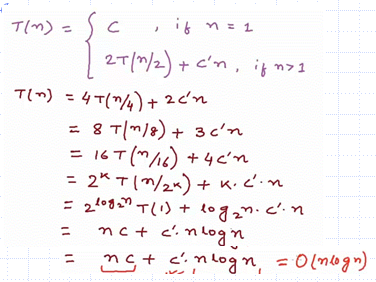 T(n) = { C , if n = 1
2T(n/2) + c'n , if n>1
T(n) = 4T(n/4) + 2c'n
= 8T(n/8) + 3c'n
= 16T(n/16) + 4c'n
= 2^k T(n/2^k) + k.c'.n
= 2^log₂n T(1) + log₂n.c'.n
= nc + c'.nlogn
= nc + c'.nlogn = O(nlogn)